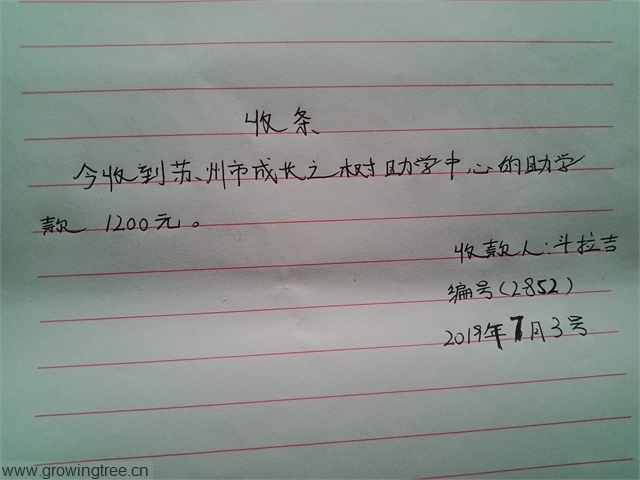 收条
今收到苏州市成长之树助学中心的助学
款 1200元。
收款人:斗拉吉
编号(2852)
2019年7月3号
www.growingtree.cn